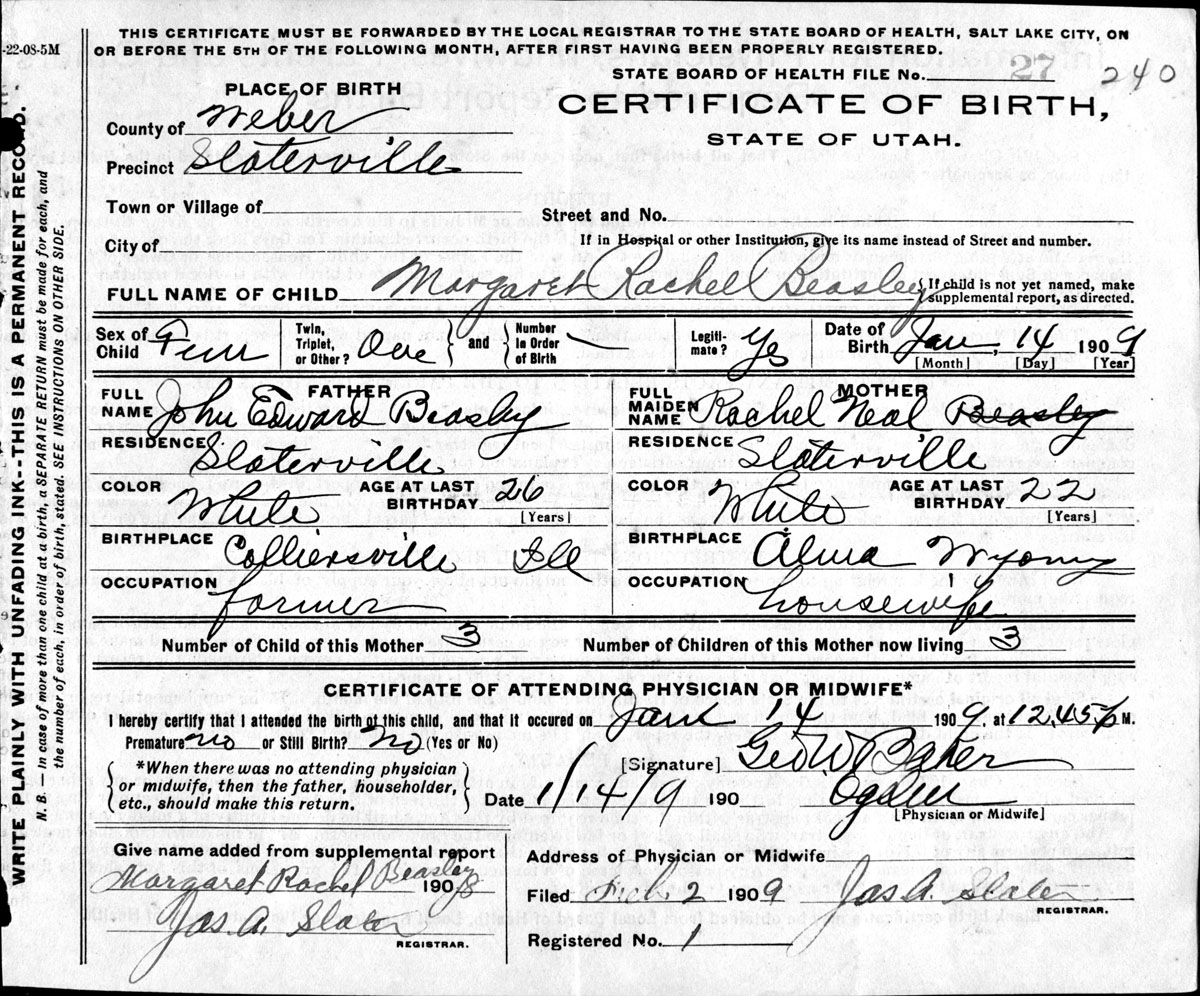 THIS CERTIFICATE MUST BE FORWARDED BY THE LOCAL REGISTRAR TO THE STATE BOARD OF HEALTH, SALT LAKE CITY, ON
-22-08-5M
OR BEFORE THE 5TH OF THE FOLLOWING MONTH, AFTER FIRST HAVING BEEN PROPERLY REGISTERED.
STATE BOARD OF HEALTH FILE No. 27 240
PLACE OF BIRTH
CERTIFICATE OF BIRTH,
County of Weber
STATE OF UTAH.
Precinct Slaterville
Town or Village of
Street and No.
City of
If in Hospital or other Institution, give its name instead of Street and number.
FULL NAME OF CHILD Margaret Rachell Beasley { If child is not yet named, make
supplemental report, as directed.
Sex of Child Fem Twin, Triplet, or Other? One } and { Number in Order of Birth Legiti-mate? Yes Date of Birth Jan, 14 1909
[Month] [Day] [Year]
FATHER MOTHER
FULL NAME John Edward Beasley FULL MAIDEN NAME Rachel Neal Beasley
RESIDENCE Slaterville RESIDENCE Slaterville
COLOR White AGE AT LAST BIRTHDAY 26 COLOR White AGE AT LAST BIRTHDAY 22
[Years] [Years]
BIRTHPLACE Colliersville Ill BIRTHPLACE Alma Wyomy
OCCUPATION farmer OCCUPATION housewife
Number of Child of this Mother 3 Number of Children of this Mother now living 3
CERTIFICATE OF ATTENDING PHYSICIAN OR MIDWIFE*
I hereby certify that I attended the birth of this child, and that it occured on Jan 14 1909, at 12.45 P M.
Premature no or Still Birth? No (Yes or No)
[Signature] Geo. W. Baker
{ *When there was no attending physician
or midwife, then the father, householder,
etc., should make this return. }
Date 1/14/9 190 Ogden
[Physician or Midwife]
Give name added from supplemental report
Address of Physician or Midwife
Margaret Rachel Beasley 190
Filed 2 1909 Jas. A. Slater
REGISTRAR.
Jas. A. Slater
REGISTRAR.
Registered No. 1
WRITE PLAINLY WITH UNFADING INK--THIS IS A PERMANENT RECORD.
N. B. In case of more than one child at a birth, a SEPARATE RETURN must be made for each, and
the number of each, in order of birth, stated. SEE INSTRUCTIONS ON OTHER SIDE.